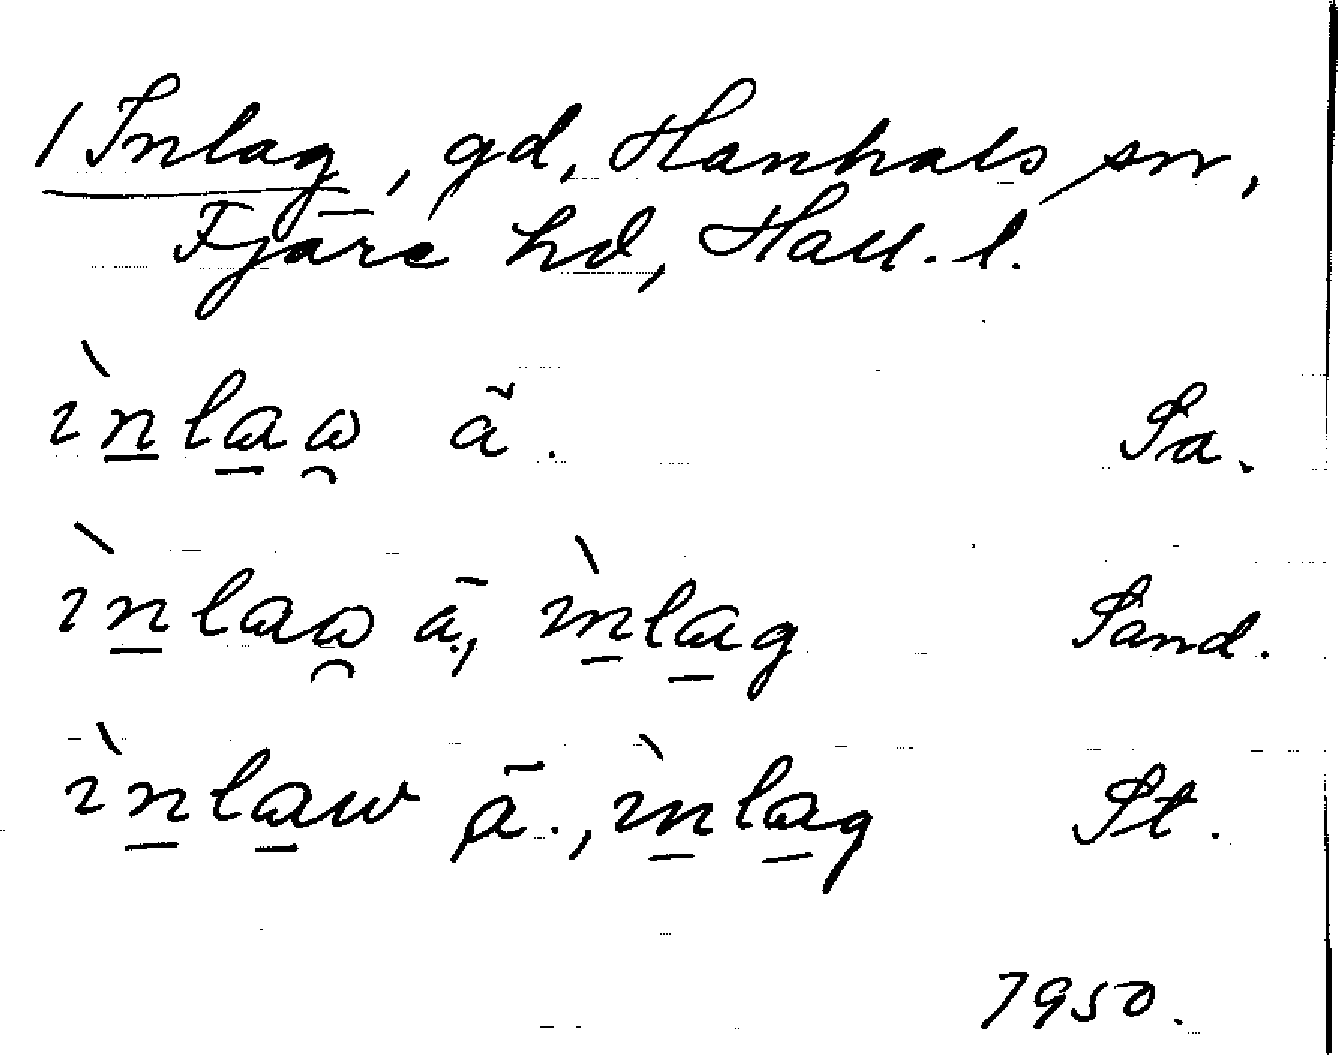 1 Inlag, gd, Hanhals sn,
Fjäre hd, Hall. l.
ìnlaω ā. Sa.
ìnlaω ā, ìnlag Sand.
ìnlaw ā., ìnlag St.
1950.